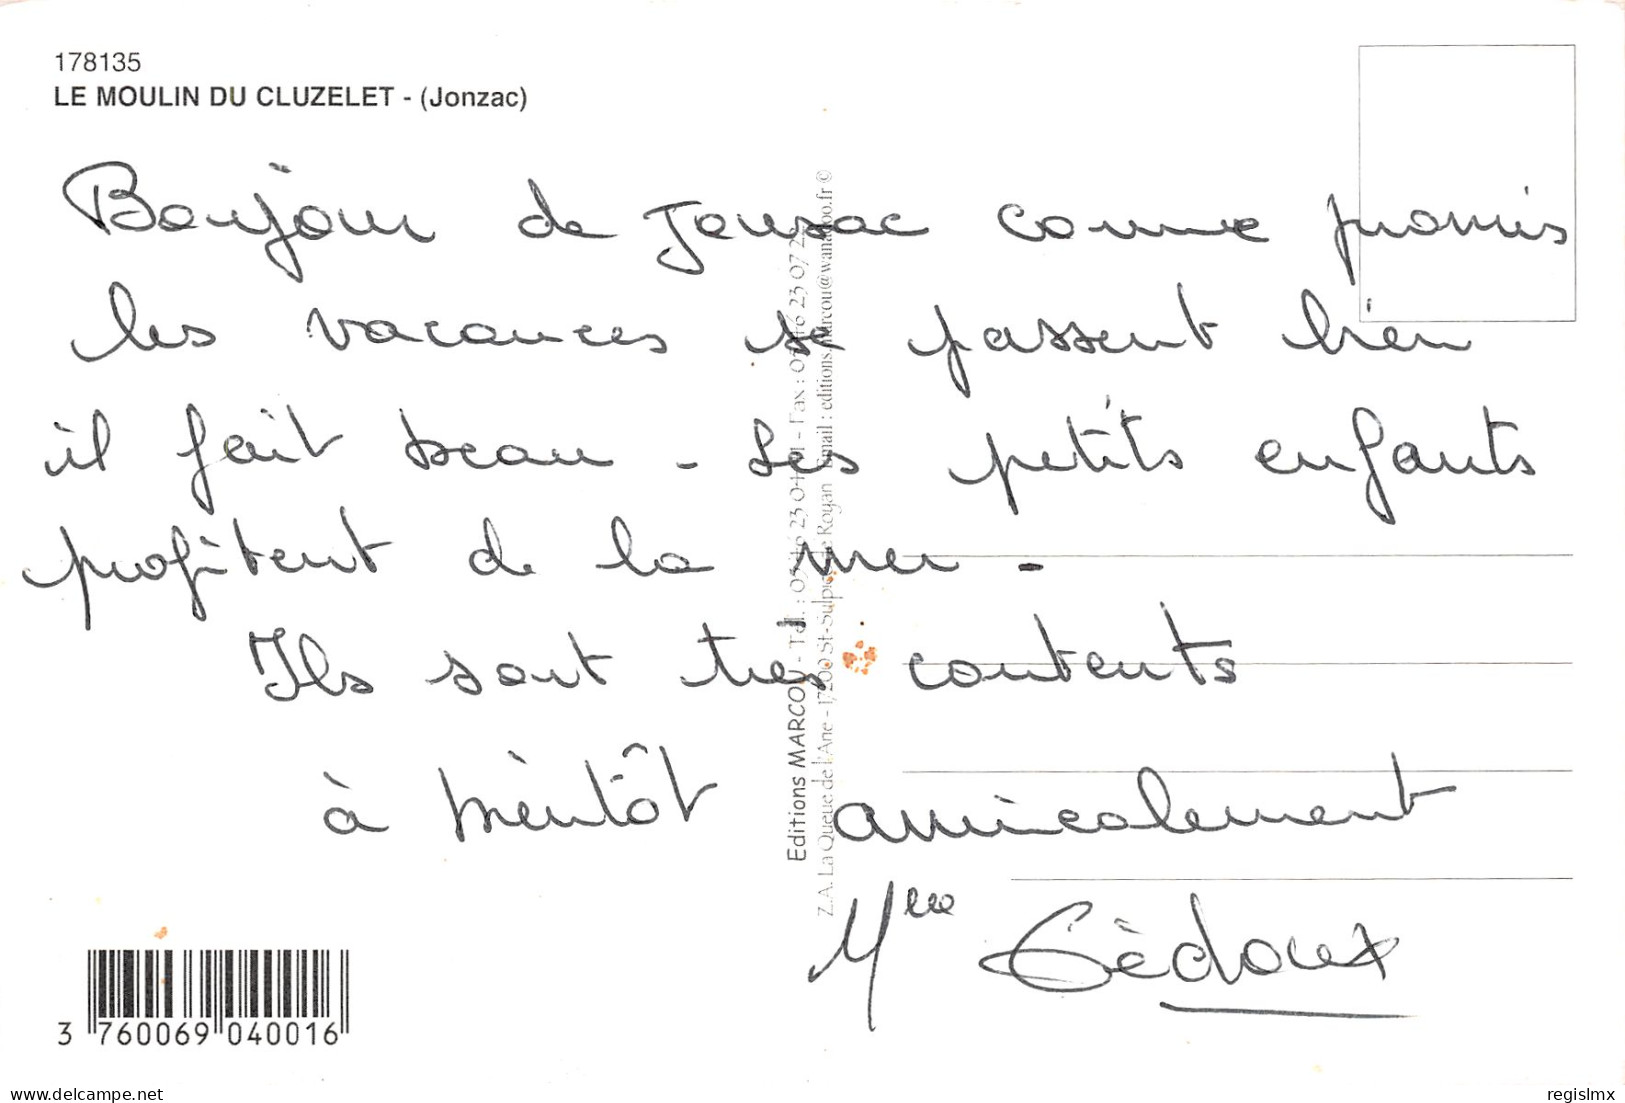 178135
LE MOULIN DU CLUZELET - (Jonzac)
Bonjour de Jonzac comme promis
les vacances se passent bien
il fait beau - Les petits enfants
profitent de la mer -
Ils sont très contents
à bientôt amicalement
Mme Gédoux
Editions MARCOU - Tél. : 05 46 23 04 - Fax : 05 46 23 07
Z.A. La Queue de l'Ane - 17200 St-Sulpice de Royan Email : editions.marcou@wanadoo.fr ©
3 760069 040016
www.delcampe.net
regislmx